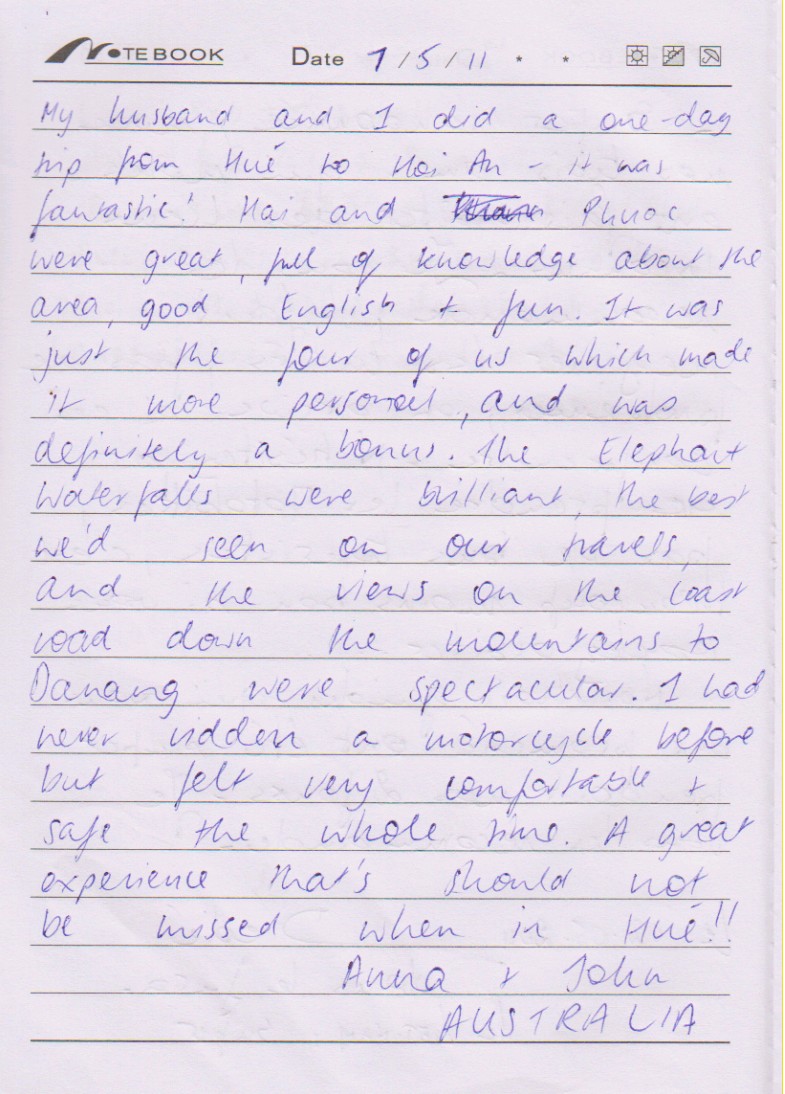 NOTEBOOK Date 7/5/11 * *
My husband and I did a one-day
trip from Hué to Hoi An - it was
fantastic! Hai and Phuoc
were great, full of knowledge about the
area, good English + fun. It was
just the four of us which made
it more personal, and was
definitely a bonus. The Elephant
waterfalls were brilliant, the best
we'd seen on our travels,
and the views on the coast
road down the mountains to
Danang were spectacular. I had
never ridden a motorcycle before
but felt very comfortable +
safe the whole time. A great
experience that's should not
be missed when in Hué!!
Anna + John
AUSTRALIA